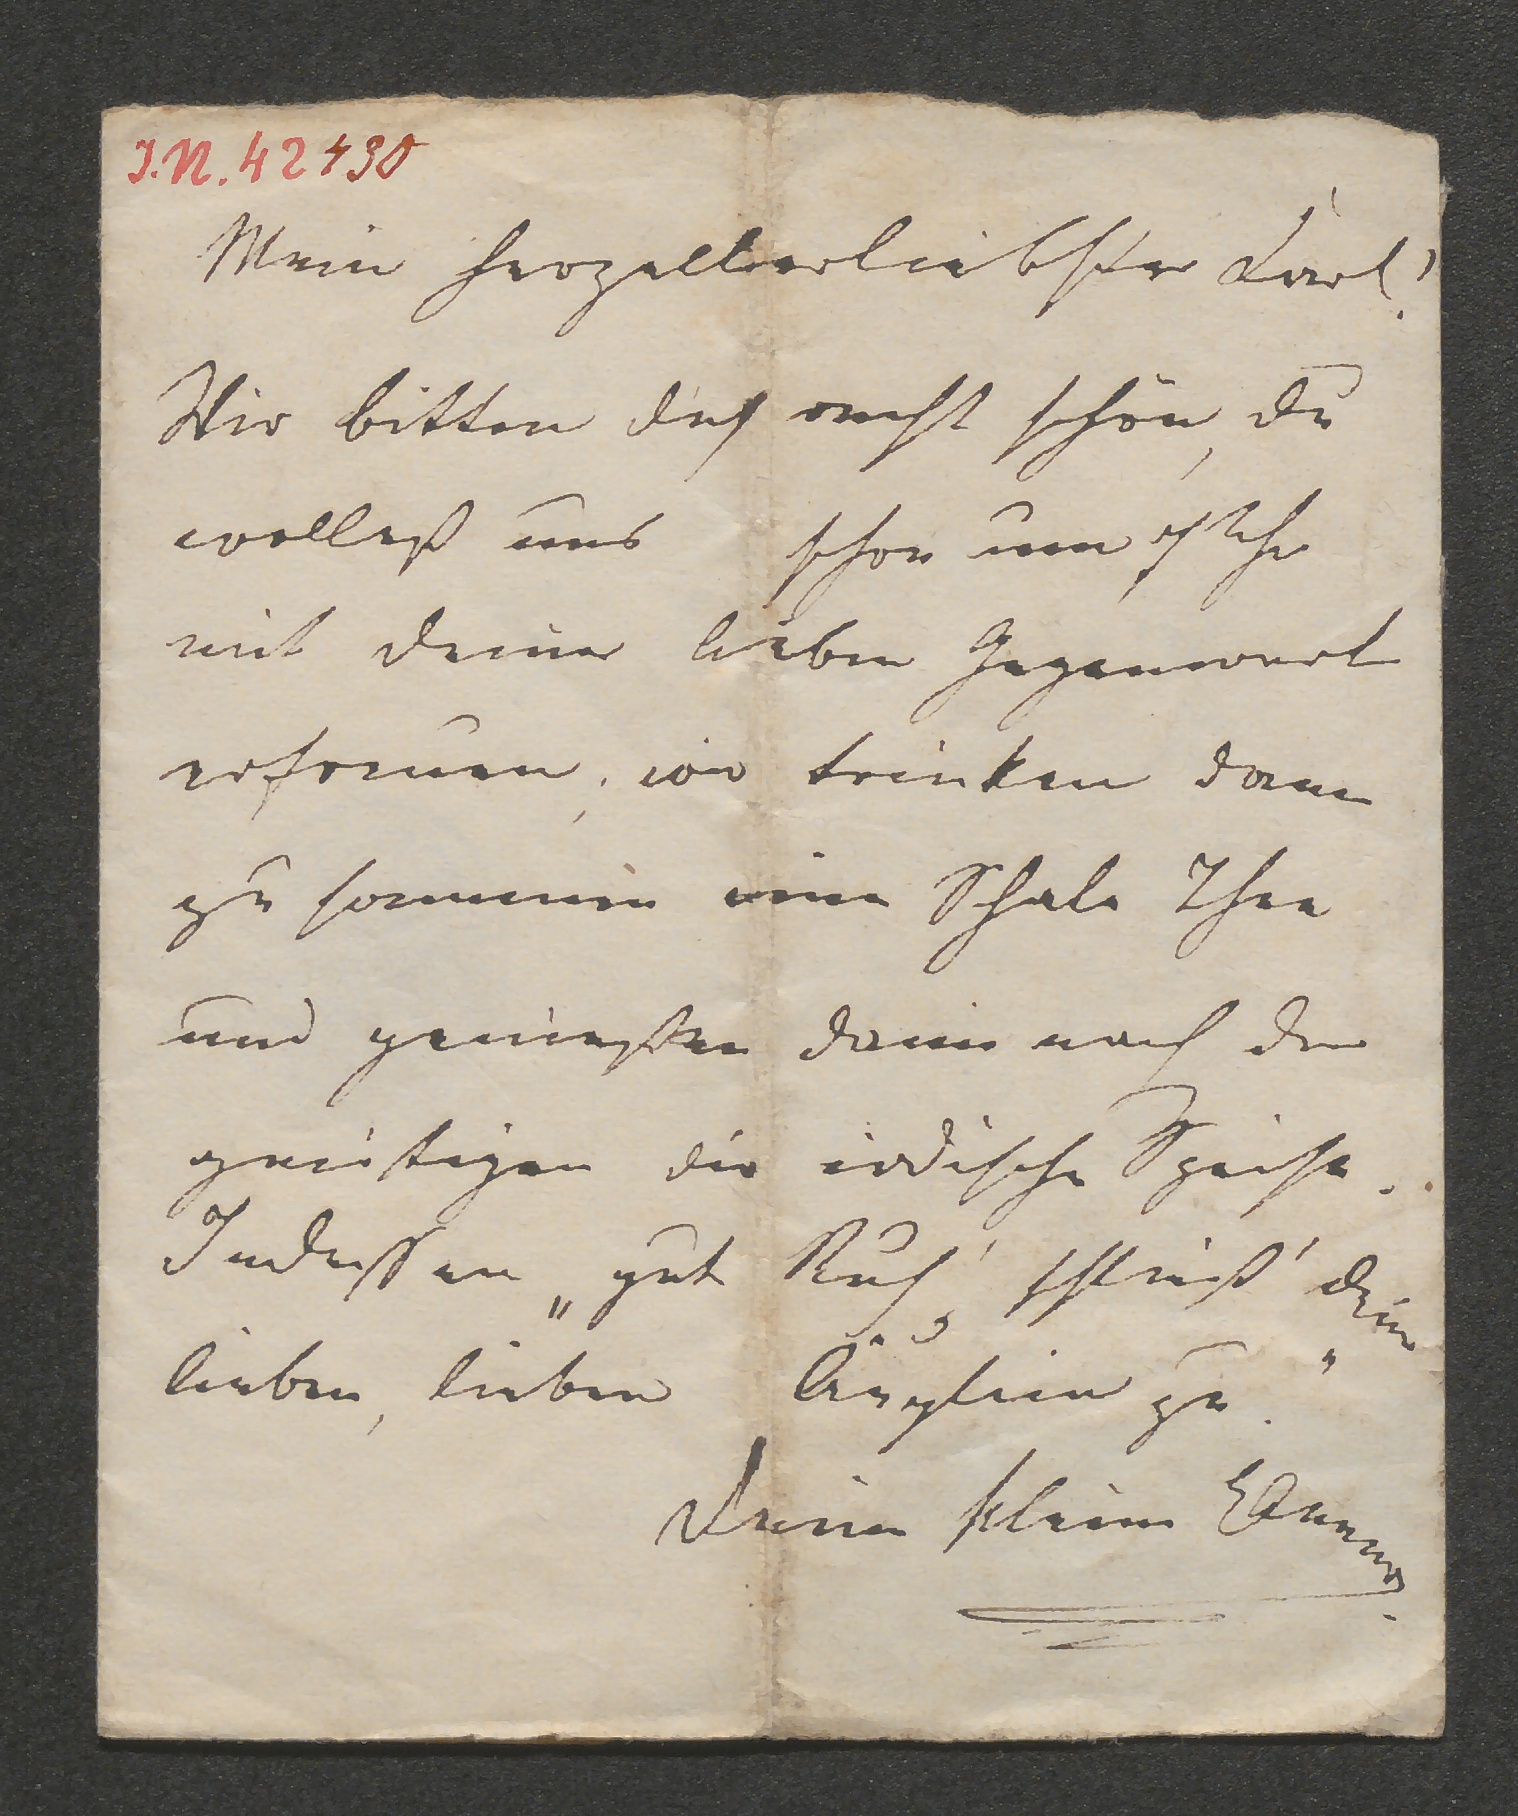 J.N. 42430
Mein herzallerliebster Karl!
Wir bitten dich recht schön, du
wollest uns schon um Uhr
mit deiner lieben Gegenwart
erfreuen; wir trinken dann
zusammen eine Schale Thee
und genießen dann nach der
geistigen die irdische Speise.
Indessen „gut Ruh', schließ' dein
lieben, lieben Äuglein zu."
Deine kleine